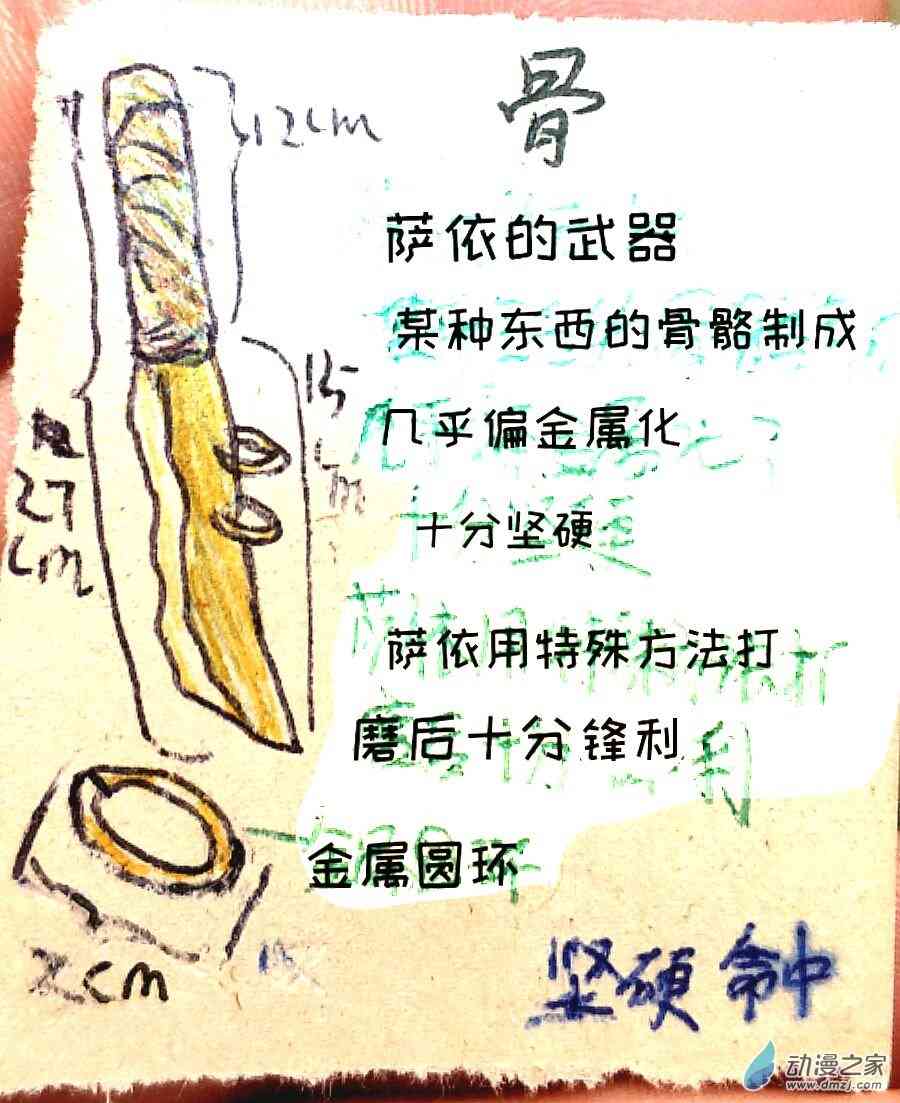 骨
12cm
萨依的武器
某种东西的骨骼制成
15
cm
几乎偏金属化
27
cm
十分坚硬
萨依用特殊方法打
磨后十分锋利
金属圆环
2cm
坚硬 命中
动漫之家
www.dmzj.com